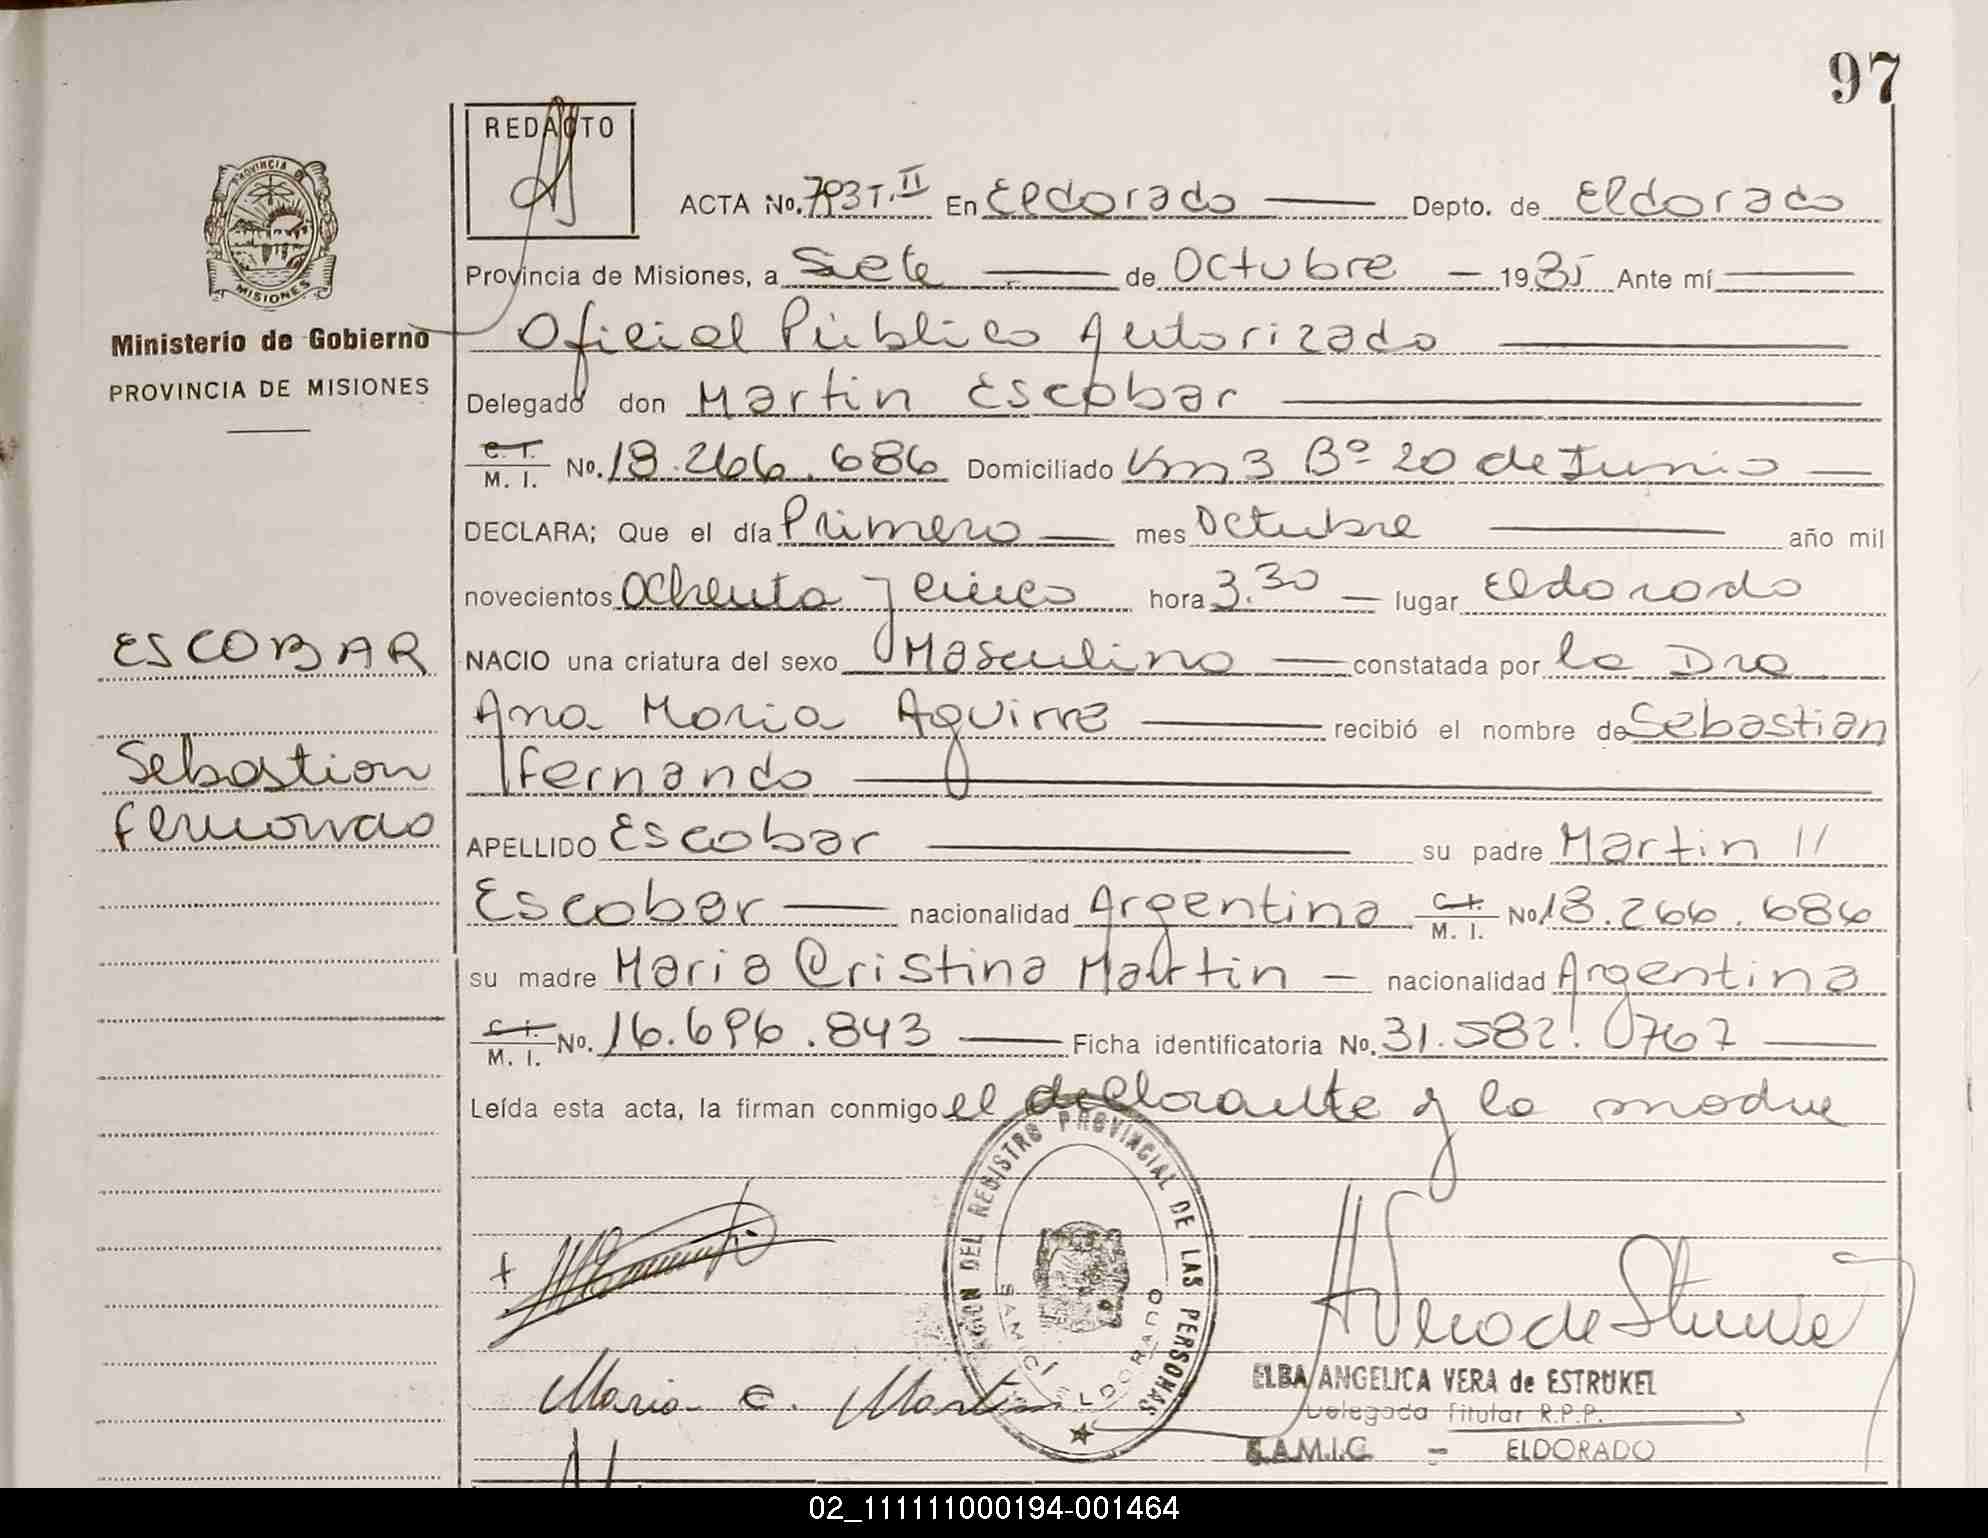 97
REDACTO
PROVINCIA DE
MISIONES
Ministerio de Gobierno
PROVINCIA DE MISIONES
ACTA No. 793 T. II En Eldorado Depto. de Eldorado
Provincia de Misiones, a Siete de Octubre 1985 Ante mí
Oficial Público Autorizado
Delegado don Martin Escobar
C. I.
M. I. No. 18.266.686 Domiciliado Km 3 Bº 20 de Junio
DECLARA; Que el día Primero mes Octubre año mil
novecientos Ochenta y cinco hora 3.30 lugar Eldorado
ESCOBAR
NACIO una criatura del sexo Masculino constatada por la Dra
Ana Maria Aguirre recibió el nombre de Sebastian
Sebastian
Fernando
Fernando
APELLIDO Escobar su padre Martin //
Escobar nacionalidad Argentina C. I.
M. I. No. 18.266.686
su madre Maria Cristina Martin nacionalidad Argentina
C. I.
M. I. No. 16.696.843 Ficha identificatoria No. 31.582.0767
Leída esta acta, la firman conmigo el declarante y la madre
DEL REGISTRO PROVINCIAL DE LAS PERSONAS
SAMIC ELDORADO
Maria C. Martin
ELBA ANGELICA VERA de ESTRUKEL
Delegada Titular R.P.P.
S.A.M.I.C. - ELDORADO
02_111111000194-001464